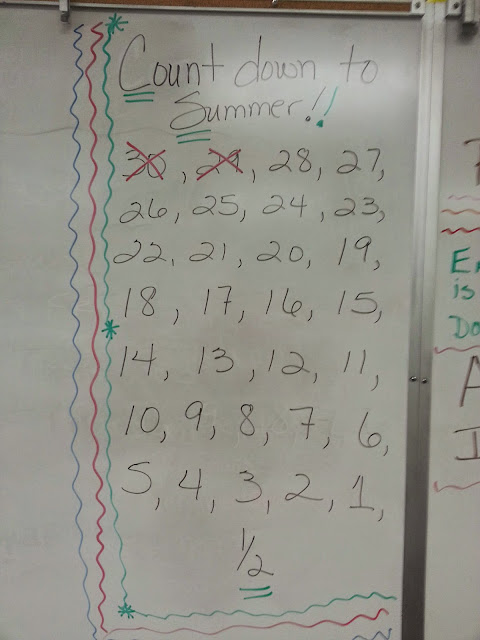 Count down to
Summer!!
30, 29, 28, 27,
26, 25, 24, 23,
22, 21, 20, 19,
18, 17, 16, 15,
14, 13, 12, 11,
10, 9, 8, 7, 6,
5, 4, 3, 2, 1,
1/2
is